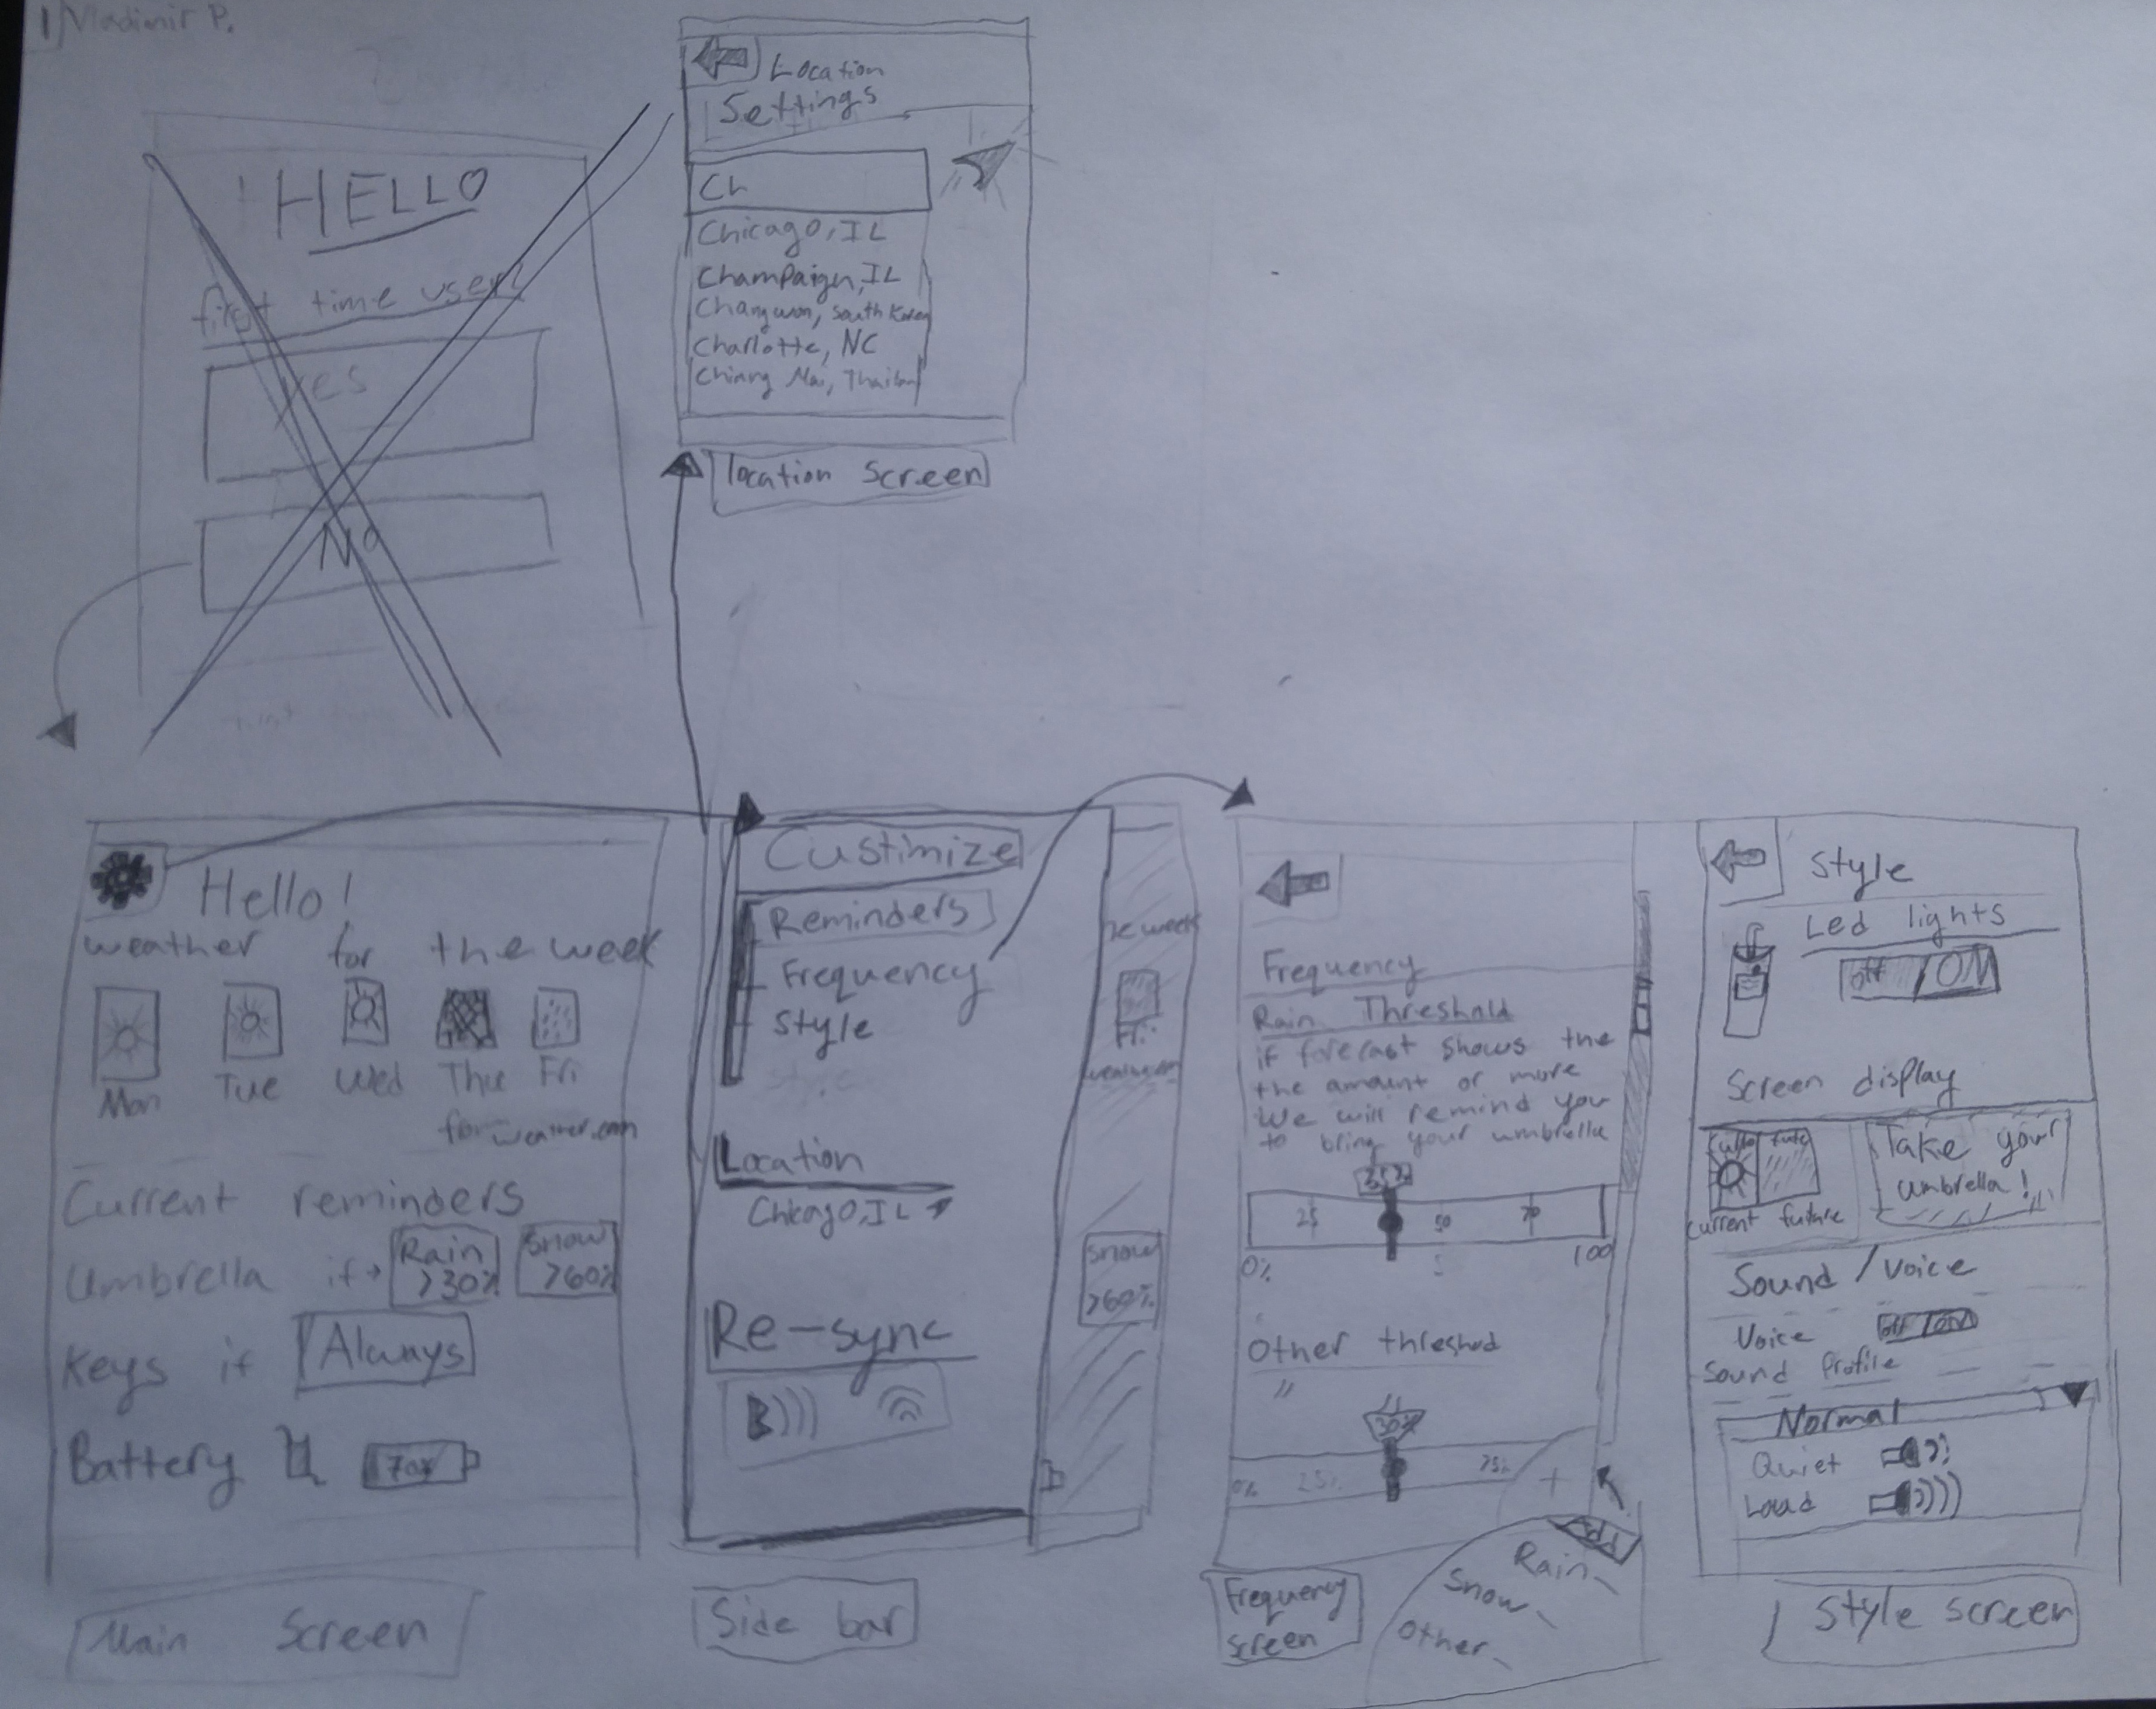 1 Vladimir P.
HELLO
first time user?
Yes
No
Location
Settings
Ch
Chicago, IL
Champaign, IL
Changwon, South Korea
Charlotte, NC
Chiang Mai, Thailand
location Screen
Hello!
weather for the week
Mon Tue Wed Thu Fri
weather.com
Current reminders
Umbrella if Rain >30% Snow >60%
Keys if Always
Battery 70%
Main Screen
Custimize
Reminders
Frequency
Style
Location
Chicago, IL
Re-sync
he week
Fri
weather.com
Snow
>60%
Side bar
Frequency
Rain Threshold
if forecast shows the
the amount or more
We will remind you
to bring your umbrella
35%
25 50 70
0% 100
Other threshod
"
30%
0% 25% 75%
+
Add
Rain
Snow
Other
Frequency
Screen
Style
Led lights
off ON
Screen display
Take your
umbrella!
Current future
Sound / Voice
Voice off ON
Sound Profile
Normal
Quiet
Loud
Style screen